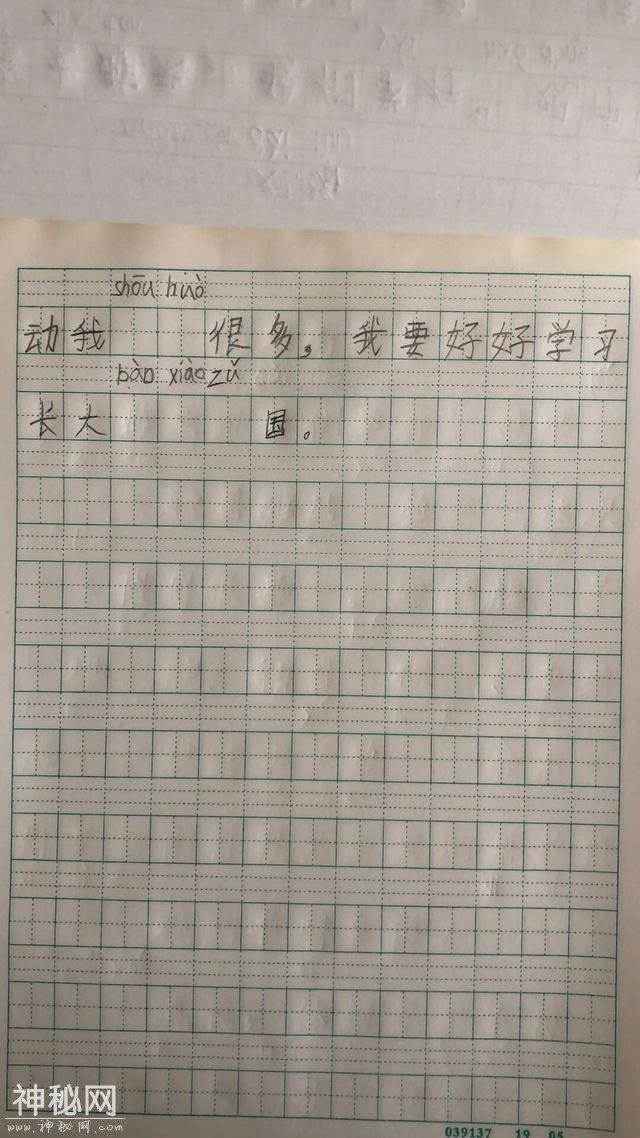 shōu huò
动我 很多，我要好好学习
bào xiào zǔ
长大 国。
039137 19.05
神秘网
www.神秘网.com